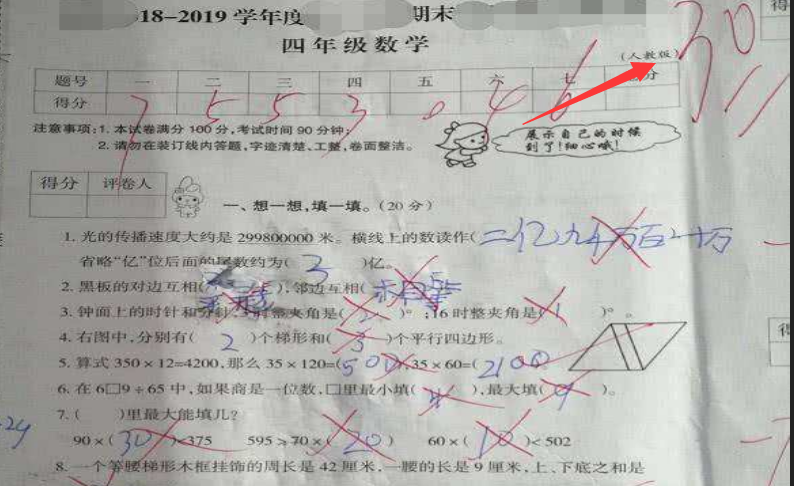 18-2019 学年度 期末
四年级数学
(人教版)
30
题号 一 二 三 四 五 六 七
得分 7 5 5 3 0 4 6
注意事项:1. 本试卷满分 100 分,考试时间 90 分钟;
2. 请勿在装订线内答题,字迹清楚、工整,卷面整洁。
展示自己的时候
到了!细心哦!
得分 评卷人
一、想一想,填一填。(20 分)
1. 光的传播速度大约是 299800000 米。横线上的数读作(二亿九千万百二十万
省略“亿”位后面的尾数约为( 3 )亿。
2. 黑板的对边互相( ),邻边互相( )
3. 钟面上的时针和分针, 时整夹角是( )°;16 时整夹角是( 1 )°。
4. 右图中,分别有( 2 )个梯形和( 3 )个平行四边形。
5. 算式 350×12=4200,那么 35×120=(500),35×60=(2100
6. 在 6□9÷65 中,如果商是一位数,□里最小填( ),最大填( 9 )。
7. ( )里最大能填几?
90×(30)<375 595>70×(20) 60×(10)<502
8. 一个等腰梯形木框挂饰的周长是 42 厘米,一腰的长是 9 厘米,上、下底之和是